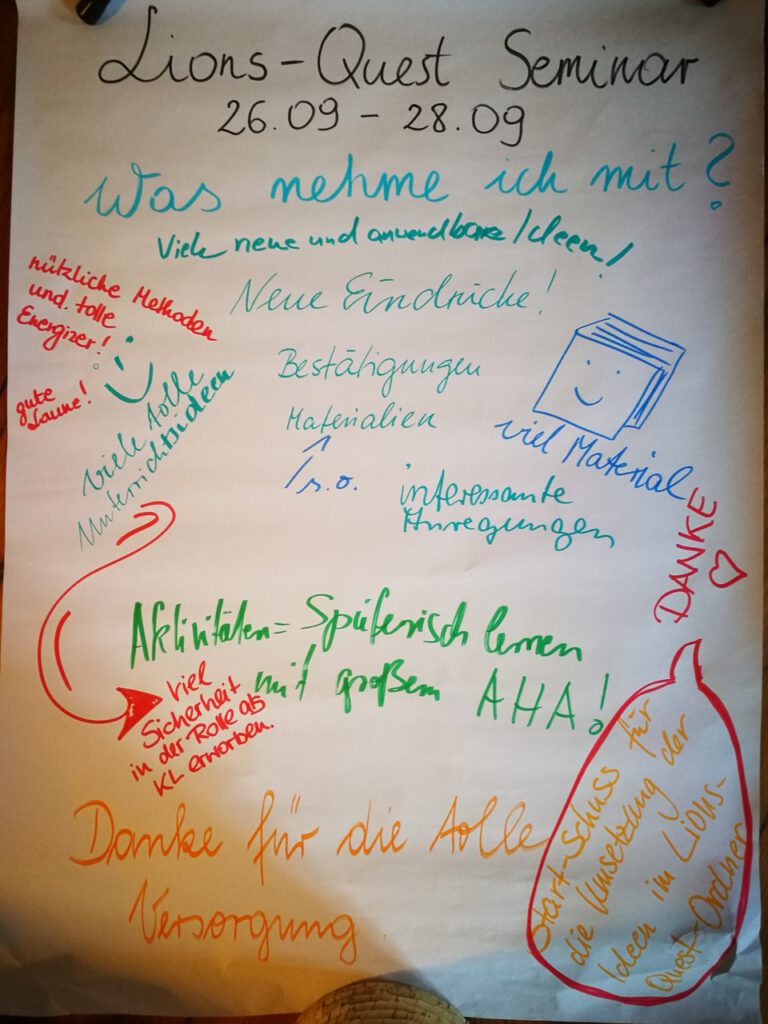 Lions-Quest Seminar
26.09 - 28.09
Was nehme ich mit?
Viele neue und anwendbare Ideen!
nützliche Methoden
und tolle
Energizer!
Neue Eindrücke!
gute
Laune!
viele tolle
Unterrichtsideen
Bestätigungen
Materialien
s.o.
viel Material
interessante
Anregungen
DANKE
Aktivitäten = Spielerisch lernen
mit großem AHA!
viel
Sicherheit
in der Rolle als
KL erworben.
Start-Schuss für
die Umsetzung der
Ideen im Lions-
Quest-Ordner
Danke für die tolle
Versorgung